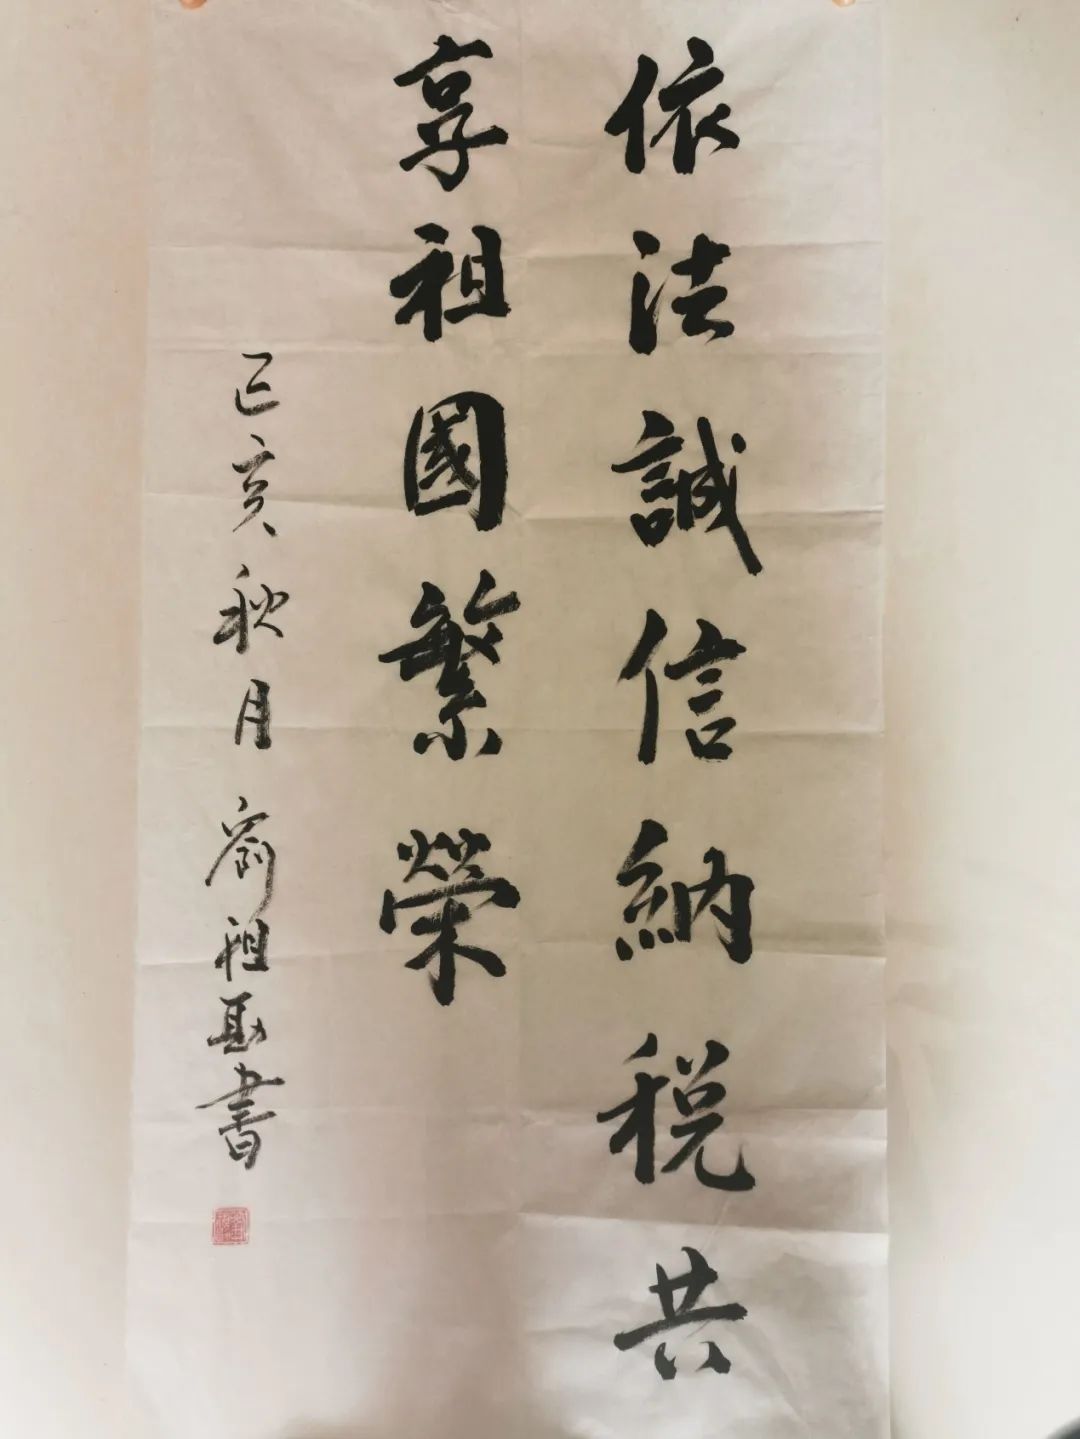 依法誠信納税共
享祖國繁榮
己亥秋月俞祖勛書